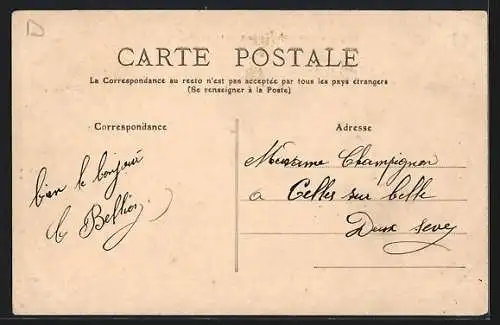 D
CARTE POSTALE
La Correspondance au recto n'est pas acceptée par tous les pays étrangers
(Se renseigner à la Poste)
Correspondance
Adresse
bien le bonjour
Madame Champignon
a Celles sur belle
Deux Sevres